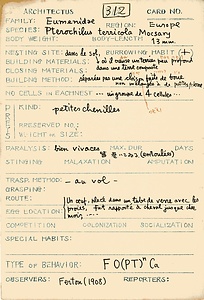 ARCHITECTUS 312 CARD NO.
FAMILY: Eumenidae REGION: Europe
SPECIES: Pterochilus terricola Mocsary
BODY WEIGHT: BODY-LENGTH: 13 mm
NESTING SITE: dans le sol, BURROWING HABIT (+)
BUILDING MATERIALS: à creuse un terrier peu profond
CLOSING MATERIALS: dans une terre compacte
BUILDING METHOD: séparées par une cloison faite de terre
NO CELLS IN EACH NEST: un groupe de 4 cellules ...
PREY KIND: petites chenilles
PRESERVED NO.:
WEIGHT OR SIZE:
PARALYSIS: bien vivaces MAX. DUR. DAYS
STINGING MALAXATION AMPUTATION
TRASP. METHOD: - au vol -
GRASPING:
ROUTE: Un oeuf. placé dans un tube de verre avec les
EGG LOCATION: proies, fut rapporté à cheval jusque chez
COMPETITION COLONIZATION SOCIALIZATION
SPECIAL HABITS:
TYPE OF BEHAVIOR: FO(PT)ⁿ Ca
OBSERVERS: Ferton (1908) REPORTERS: